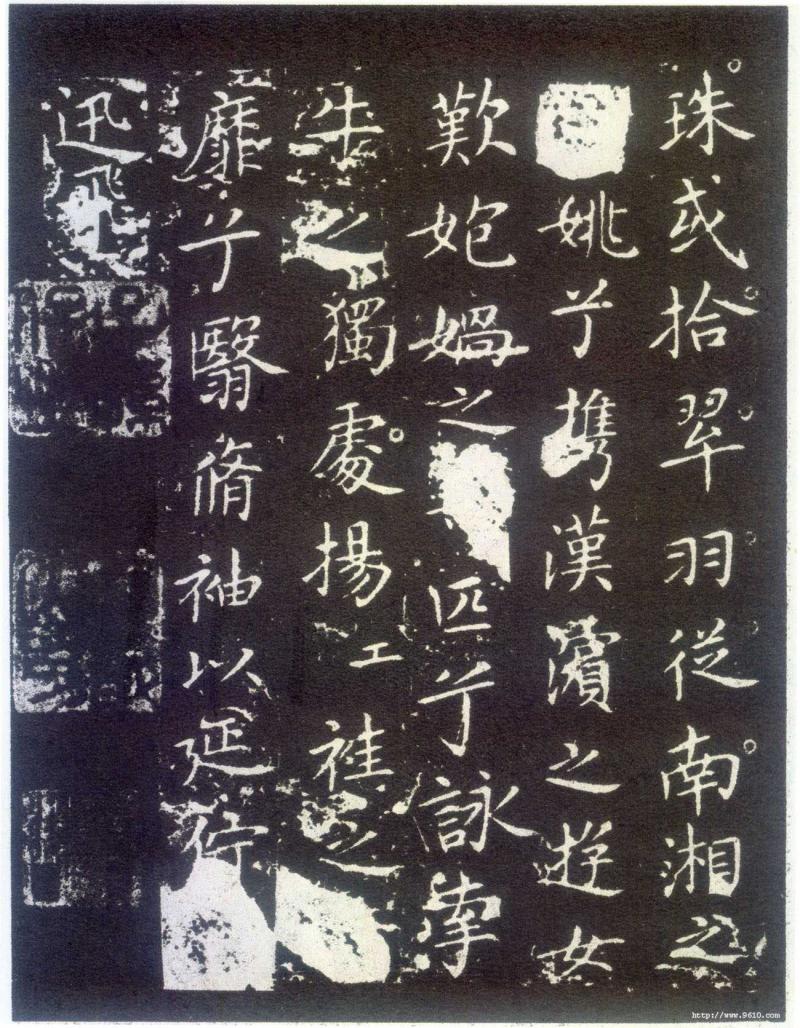 珠或拾翠羽從南湘之
姚兮攜漢濱之遊女
歎㚿媧之匹兮詠牽
牛之獨處揚袿之
靡兮翳脩袖以延佇
迅飛
http://www.9610.com